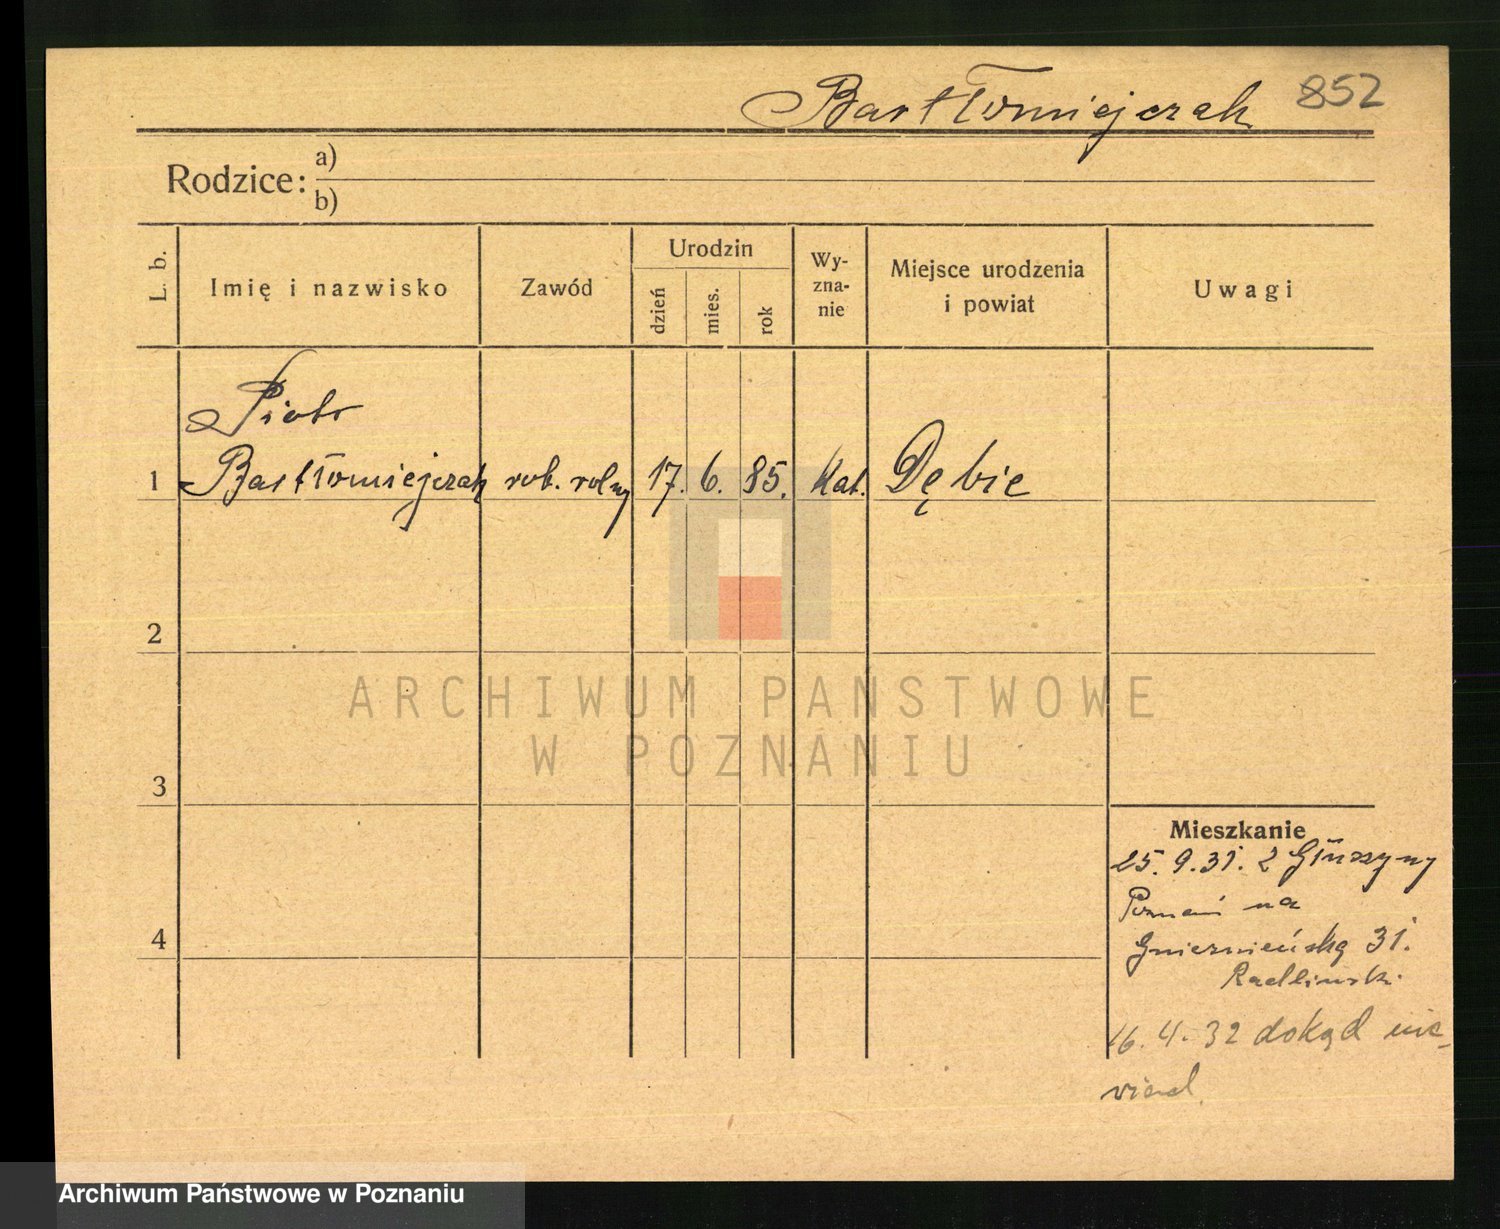 Bartłomiejczak 852
Rodzice: a)
b)
L. b.
Imię i nazwisko
Zawód
Urodzin
dzień
mies.
rok
Wy-
zna-
nie
Miejsce urodzenia
i powiat
Uwagi
Piotr
1 Bartłomiejczak rob. rolny 17. 6. 85. kat. Dębie
2
3
4
Mieszkanie
25. 9. 31. z Głuszyny
Poznań na
Gnieznieńską 31.
Radliński
16. 4. 32 dokąd nie-
wiad.
ARCHIWUM PAŃSTWOWE
W POZNANIU
Archiwum Państwowe w Poznaniu